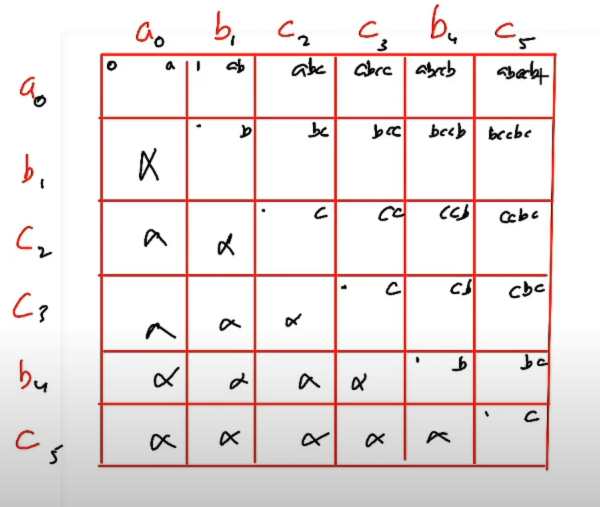 a₀ b₁ c₂ c₃ b₄ c₅
a₀ 0 a 1 ab abc abcc abccb
b₁ α b bc bcc bccb bccbc
c₂ α α c cc ccb ccbc
c₃ α α α c cb cbc
b₄ α α α α b bc
c₅ α α α α α c